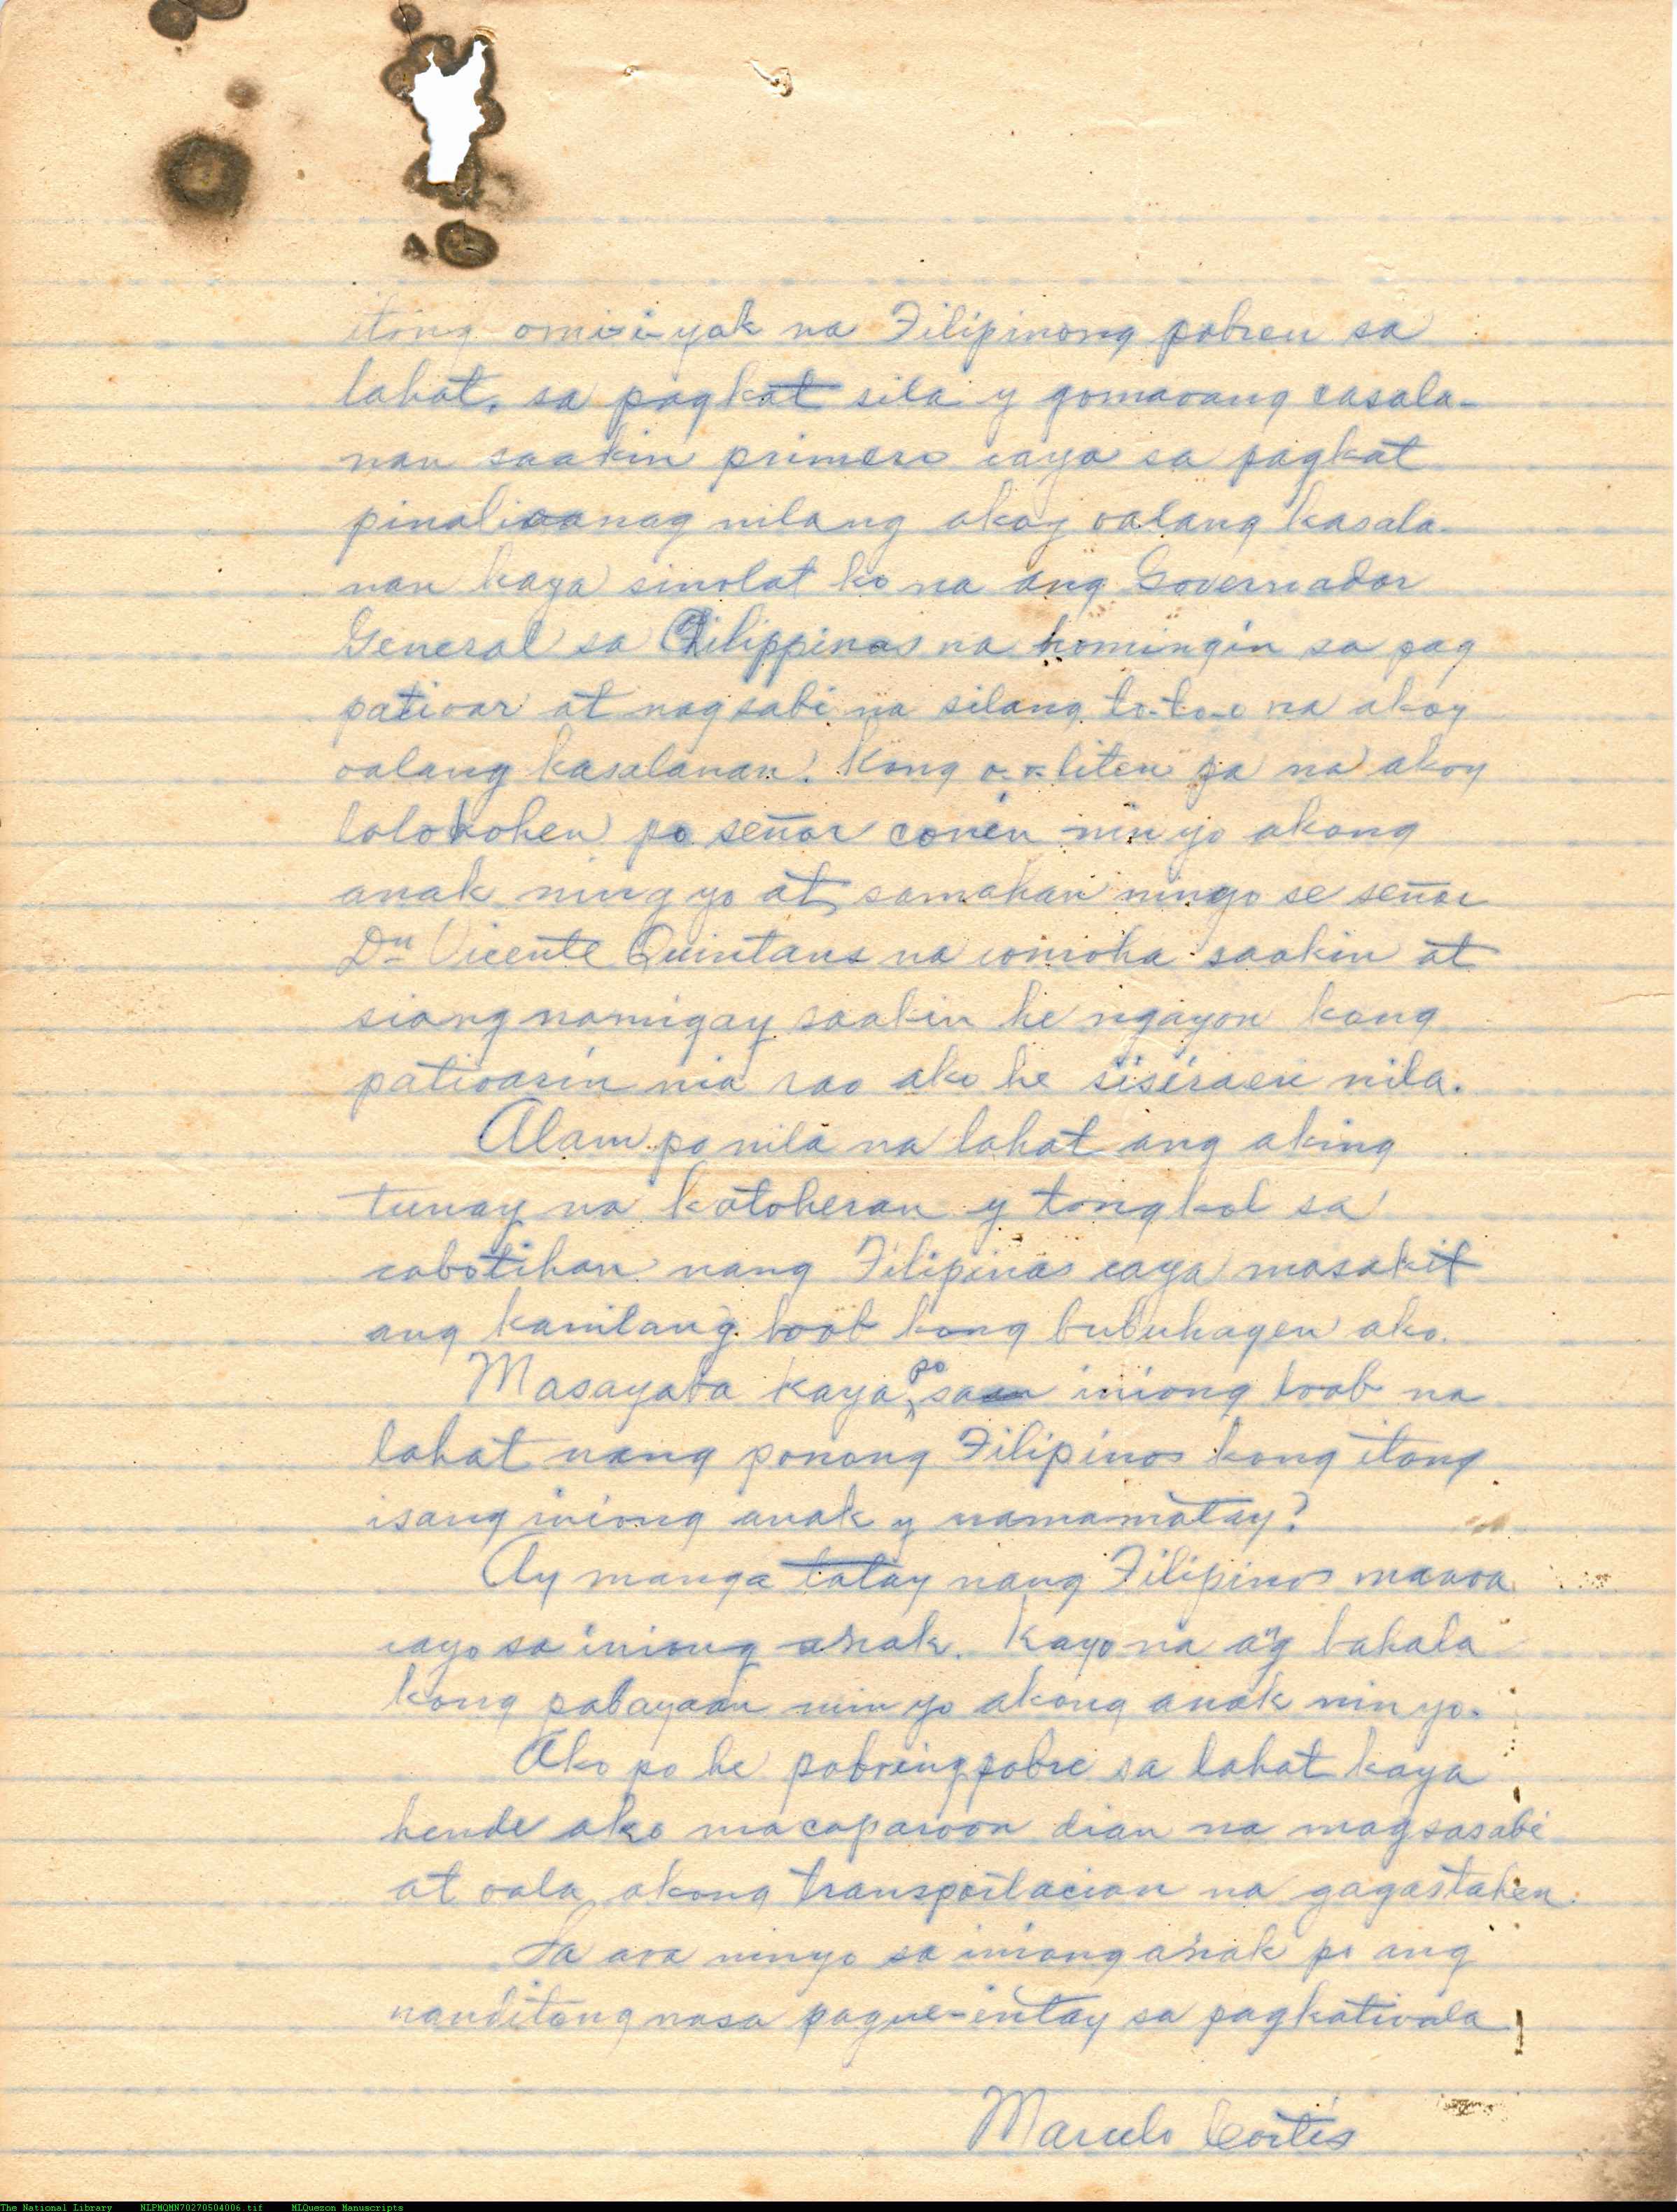 itong omi-i-yak na Filipinong pobreu sa
lahat, sa pagkat sila y gomaoang casala-
nan saakin primero caya sa pagkat
pinalioanag nilang akoy oalang kasala-
nan kaya sinolat ko na ang Governador
General sa Filippinas na homingin sa pag
patioar at nagsabi na silang to-to-o na akoy
oalang kasalanan. Kong pa na akoy
lolokohen po señor conen nin yo akong
anak ning yo at samahan ninyo se señor
Dn Vicente Quintans na comoha saakin at
siang namigay saakin he ngayon kong
patioarin nia rao ako he sisiraen nila.
Alam po nila na lahat ang aking
tunay na katoheran y tongkol sa
cabotihan nang Filipinas caya masakit
ang kanilang loob kong bubuhayen ako.
Masayaba kaya po sa iniong loob na
lahat nang ponong Filipinos kong itong
isang iniong anak y namamatay?
Ay manga tatay nang Filipinos maaoa
cayo sa iniong anak. Kayo na ag bahala
kong pabayaan nin yo akong anak nin yo.
Ako po he pobreng pobre sa lahat kaya
hende ako macaparoon dian na magsasabi
at oala akong transportacion na gagastahen.
Sa aoa ninyo sa iniong anak po ang
nanditong nasa pague-intay sa pagkatioala
Marcelo Cortés
The National Library NLPMQMN70270504006.tif MLQuezon Manuscripts